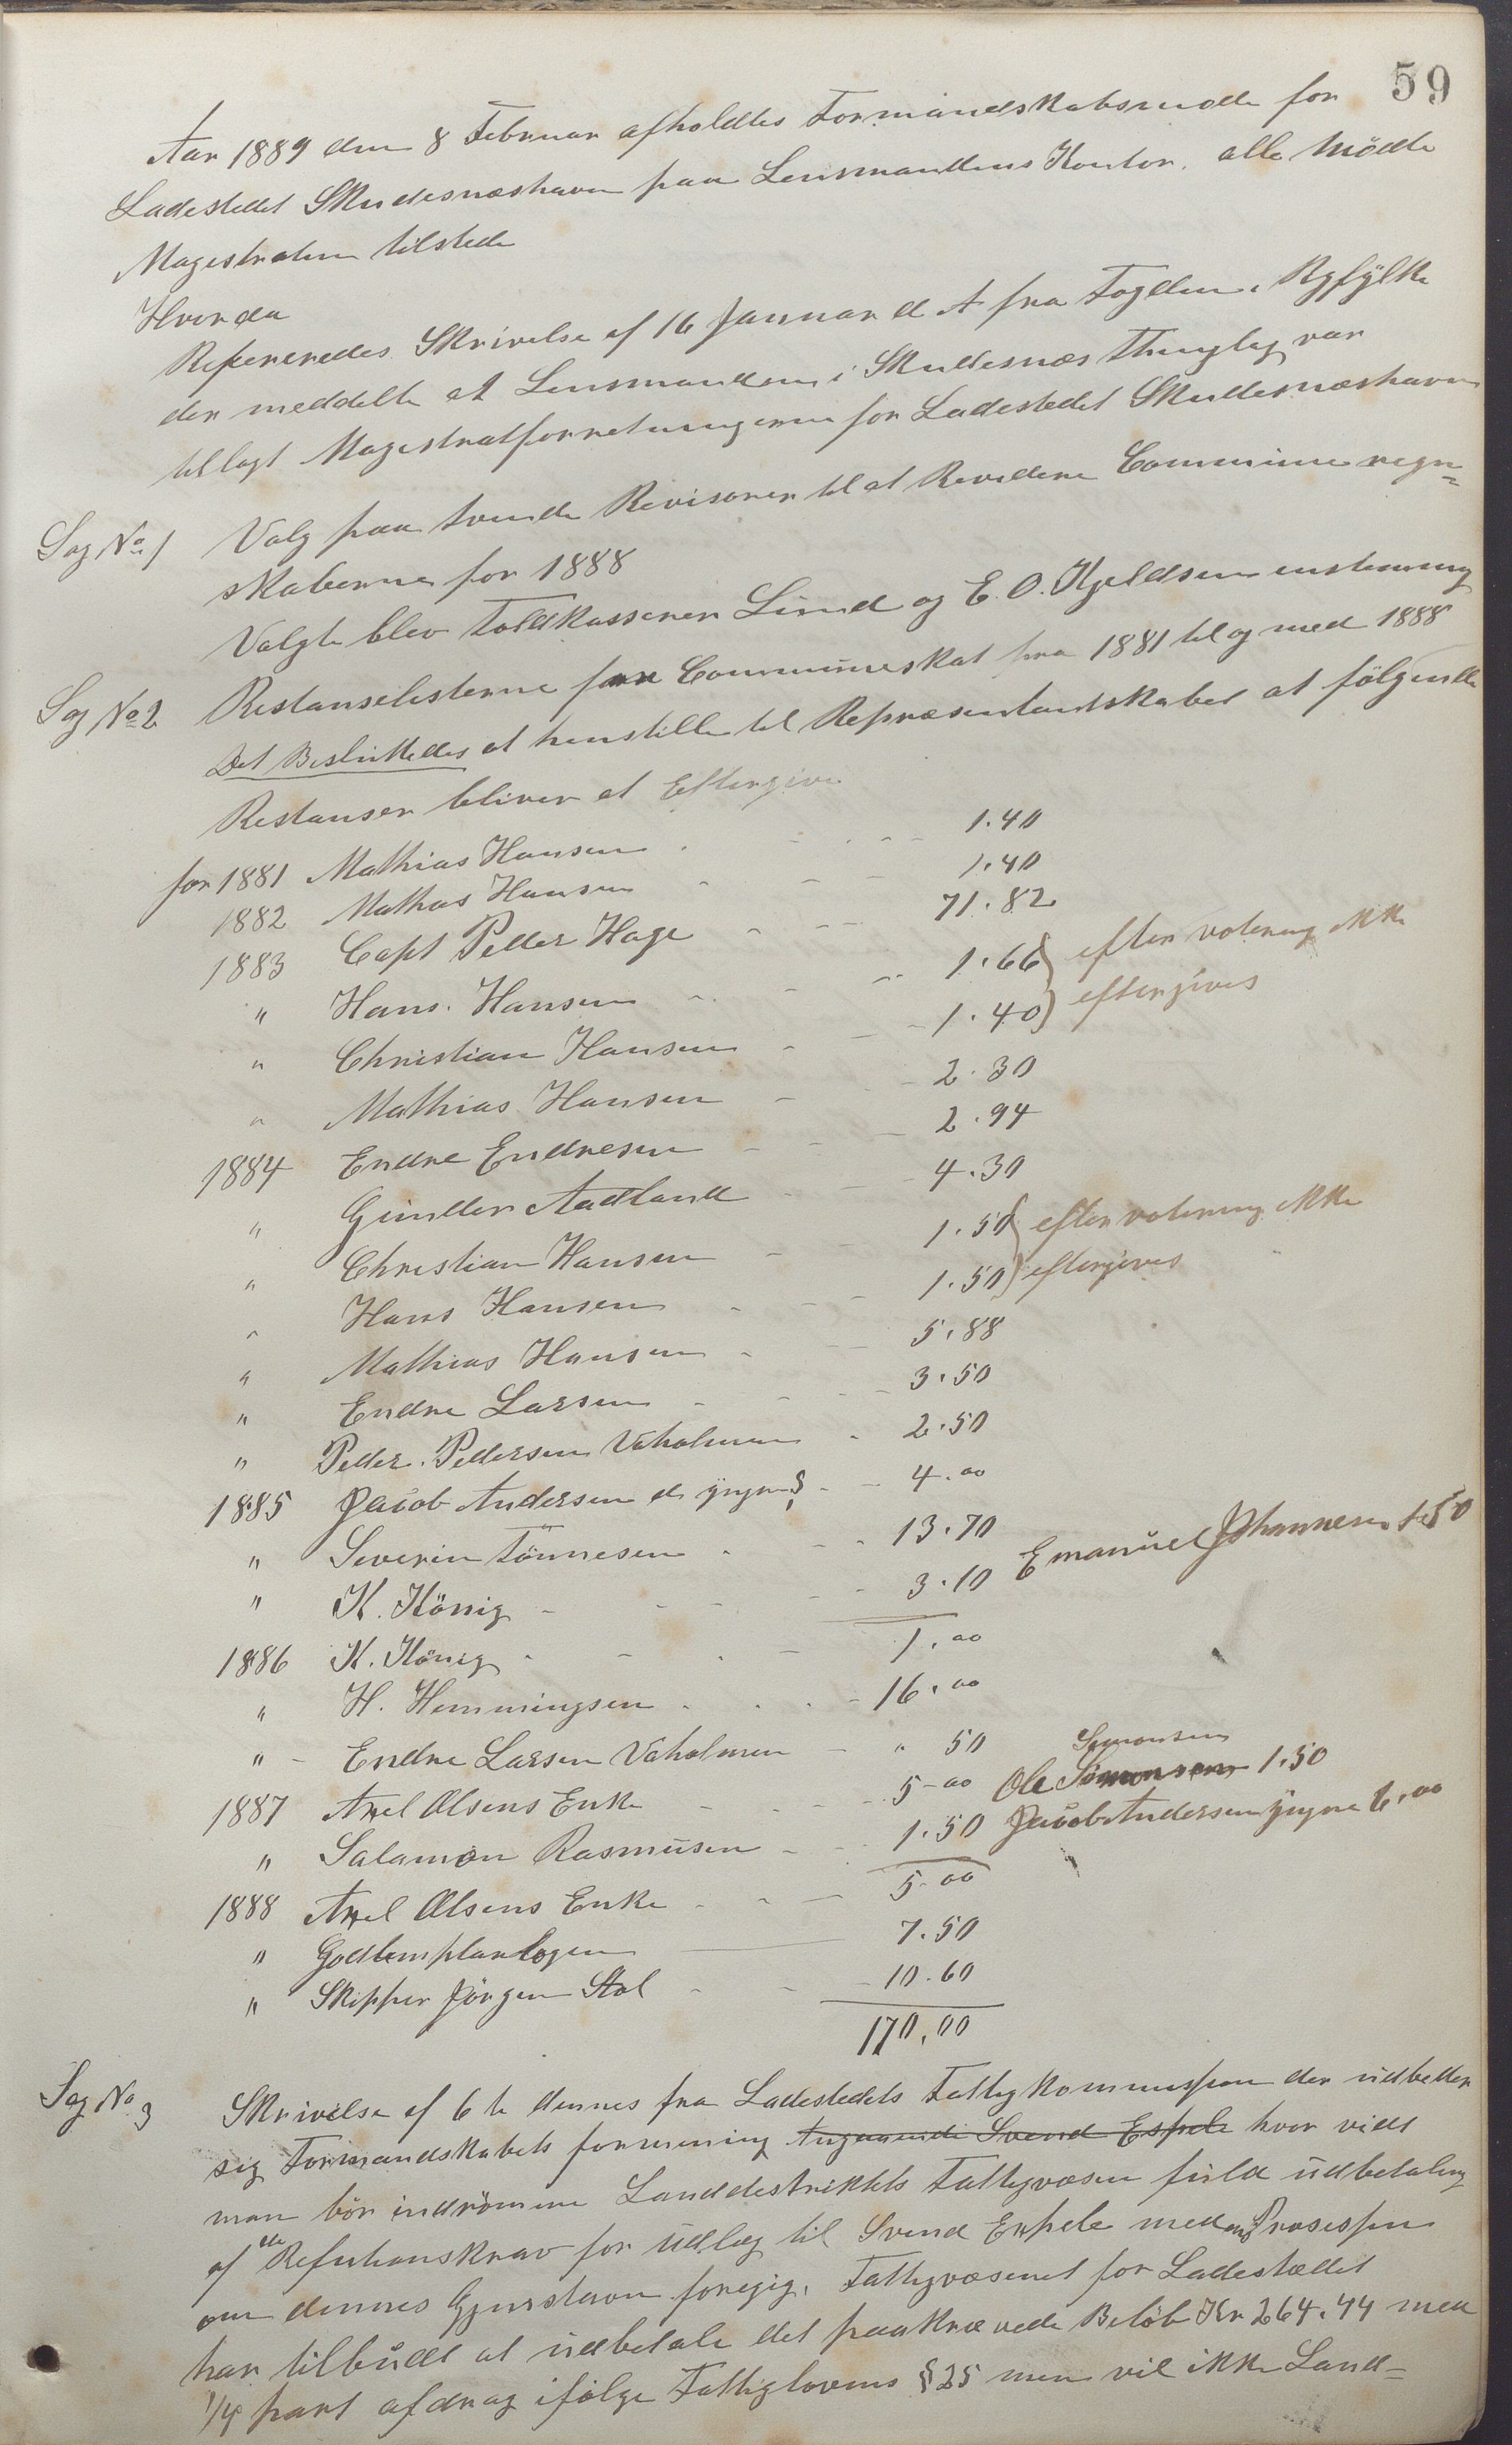 59
Aar 1889 den 8 Februar afholdtes Formandskabsmøde for
Ladestedet Skudesnæshavn paa Lensmandens Kontor. alle mödte
Magistraten tilstede
Hvorda
Refereredes Skrivelse af 16 Januar d. A fra Fogden i Ryfylke
der meddelte at Lensmanden i Skudesnæs Thinglag var
tillagt Magistratforretningerne for Ladestedet Skudesnæshavn
Sag No 1 Valg paa tvende Revisorer til at Revidere Commune regn=
skaberne for 1888
Valgte blev Toldkasserer Lund og E. O. Kjeldsen enstemmig
Sag No 2 Restanselisterne for Communeskat fra 1881 til og med 1888
Det Besluttedes at henstille til Repræsentantskabet at fölgende
Restanser bliver at Eftergive
for 1881 Mathias Hansen - - - 1.40
1882 Mathias Hansen - - - 1.40
1883 Capt Peder Hage - - - 71.82
" Hans Hansen - - - 1.66 } efter votering ikke
" Christian Hansen - - 1.40 } eftergives
" Mathias Hansen - - 2.30
1884 Endre Endresen - - - 2.94
" Gunder Aadland - - - 4.30
" Christian Hansen - - 1.50 } efter votering ikke
" Hans Hansen - - - 1.50 } eftergives
" Mathias Hansen - - 5.88
" Endre Larsen - - - 3.50
" Peder Pedersen Vaholmen - 2.50
1885 Jacob Andersen d. yngre - - 4.00
" Severin Tönnesen - - - 13.70
" K. König - - - - 3.10 Emanuel Johannesen 1.50
1886 K. König - - - - 1.00
" H. Hemmingsen - - - 16.00
" - Endre Larsen Vaholmen - " 50 Simonsen
1887 Axel Olsens Enke - - - 5-00 Ole Simonsen 1.50
" Salamon Rasmusen - - 1.50 Jacob Andersen yngre 6.00
1888 Axel Olsens Enke - - - 5-00
" Godtemplarlogen - 7.50
" Skipper Jörgen Stol - - - 10.60
170.00
Sag No 3 Skrivelse af 6te dennes fra Ladestedets Fattigkommission der udbeder
sig Formandskabets formening Angaaende Svend Espele hvor vidt
man bör indrömme Landdistriktets Fattigvæsen fuld udbetaling
af de Refutionskrav for Udlæg til Svend Espele medens Prosessen
om dennes Hjemstavn foregig. Fattigvæsenet for Ladestedet
har tilbudt at udbetale det paakrævede Belöb Kr 264.44 med
1/4 part afdrag ifölge Fattiglovens § 25 men vil ikke Land-